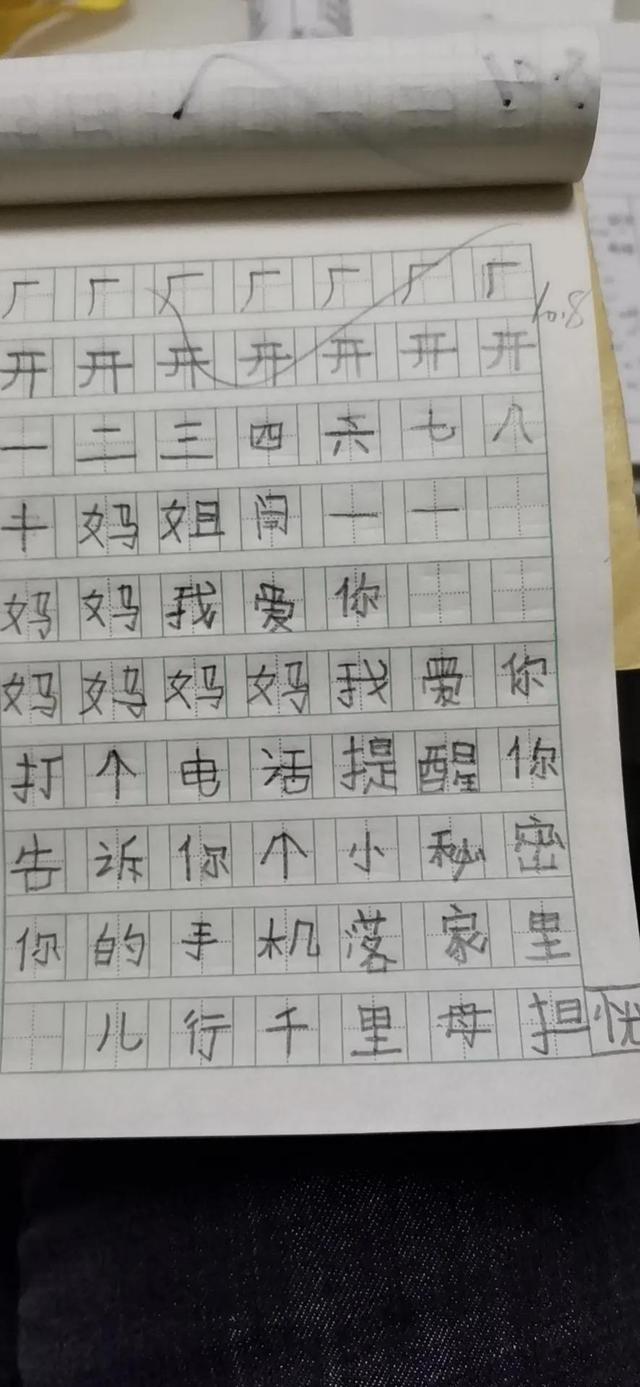 厂 厂 厂 厂 厂 厂 厂
开 开 开 开 开 开 开
10.8
一 二 三 四 六 七 八
十 妈 姐 闫 一 一
妈 妈 我 爱 你
妈 妈 妈 妈 我 爱 你
打 个 电 话 提 醒 你
告 诉 你 个 小 秘 密
你 的 手 机 落 家 里
儿 行 千 里 母 担 忧